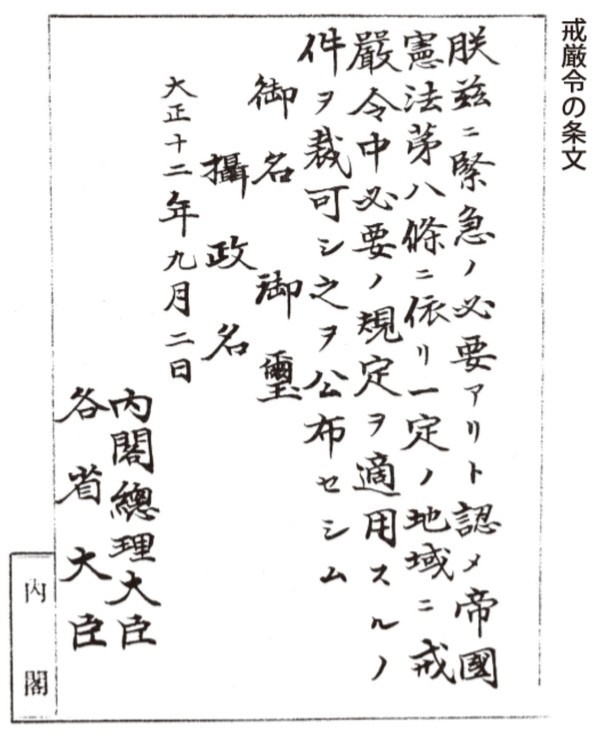 戒厳令の条文
朕玆ニ緊急ノ必要アリト認メ帝國
憲法第八條ニ依リ一定ノ地域ニ戒
嚴令中必要ノ規定ヲ適用スルノ
件ヲ裁可シ之ヲ公布セシム
御名御璽
攝政名
大正十二年九月二日
内閣總理大臣
各省大臣
内閣